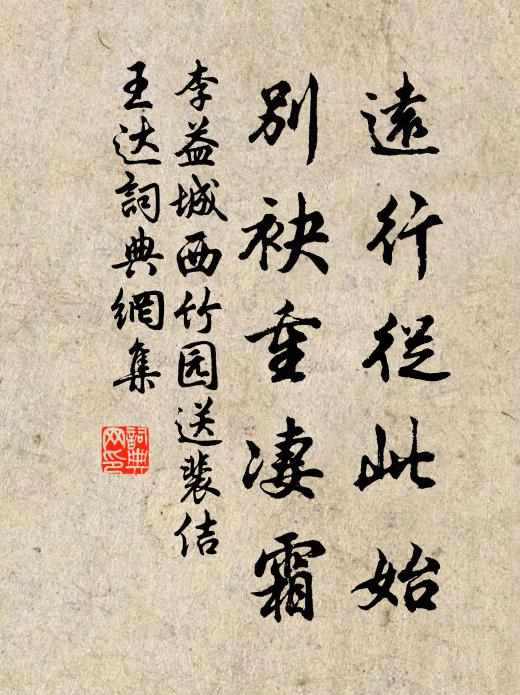 遠行從此始
別袂重凄霜
李益城西竹园送裴佶
王达詞典網集
詞典
网印